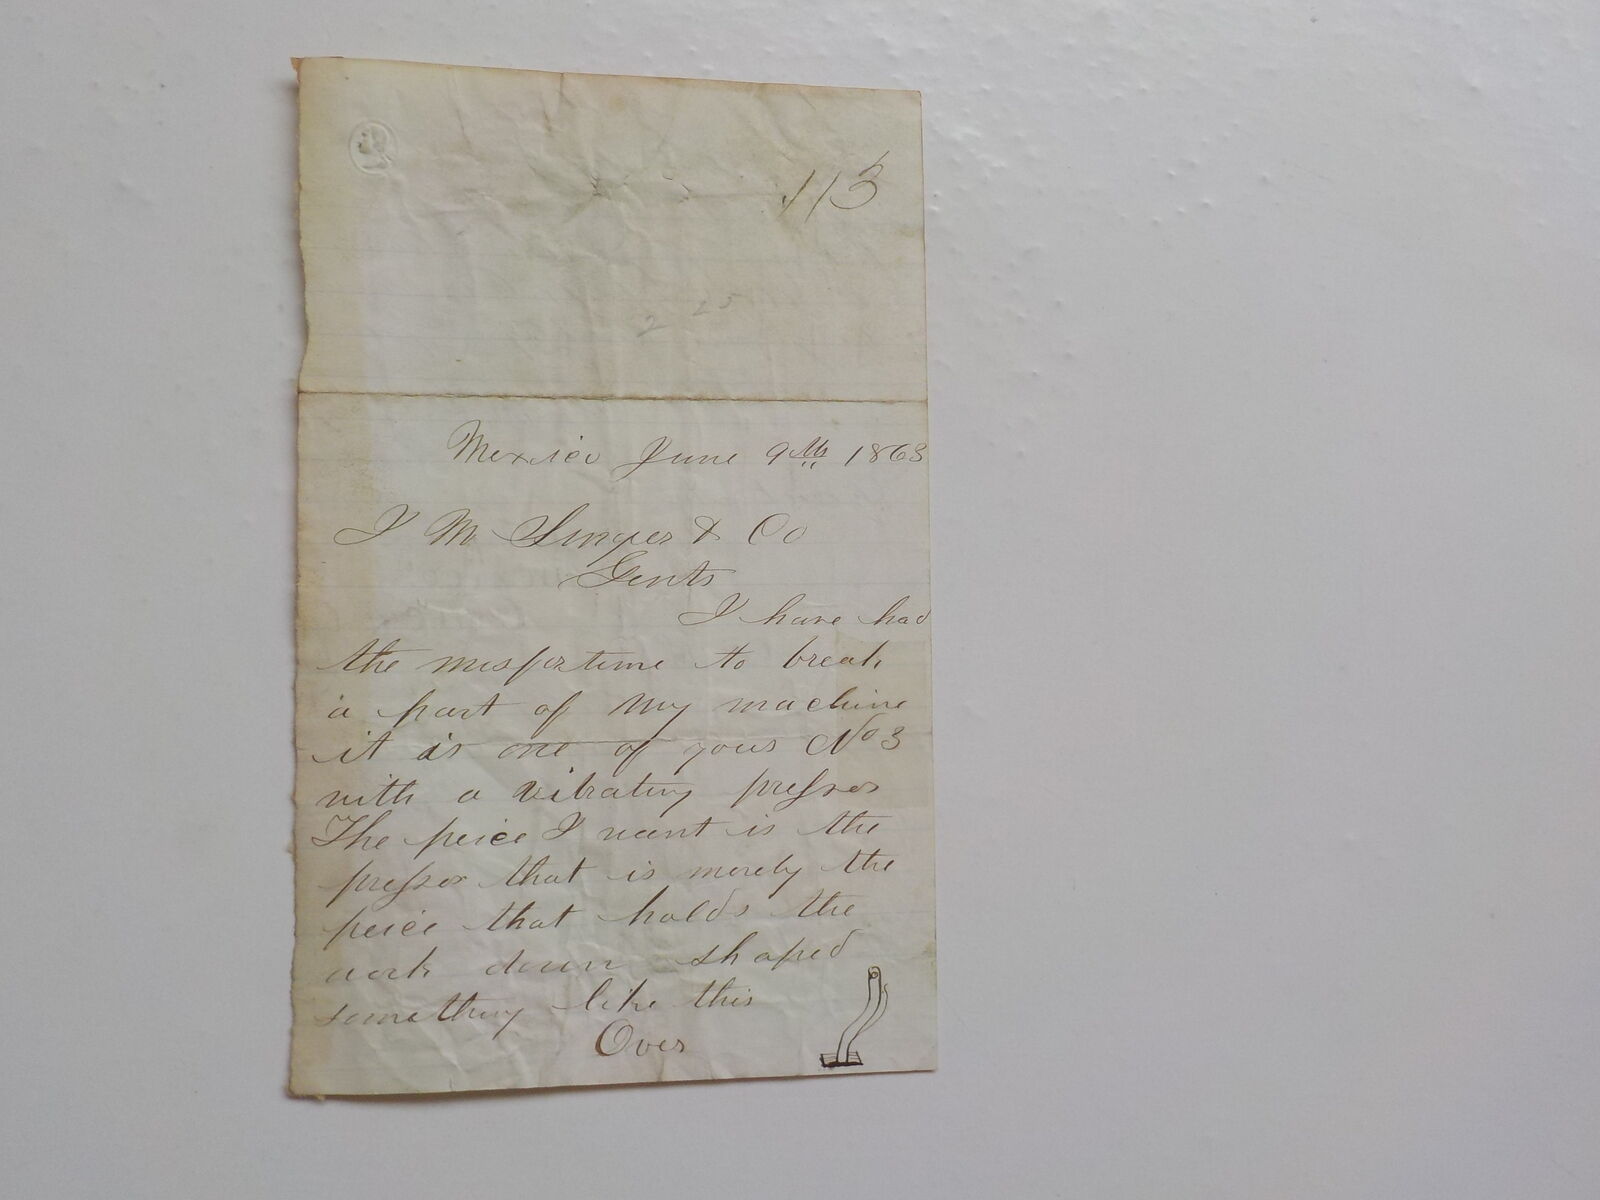 113
2 25
Mexico June 9th 1863
I M Singer & Co
Gents
I have had
the misfortune to break
a part of my machine
it is one of yours No 3
with a vibrating presser
The peice I want is the
presser that is merely the
peice that holds the
work down shaped
something like this
Over